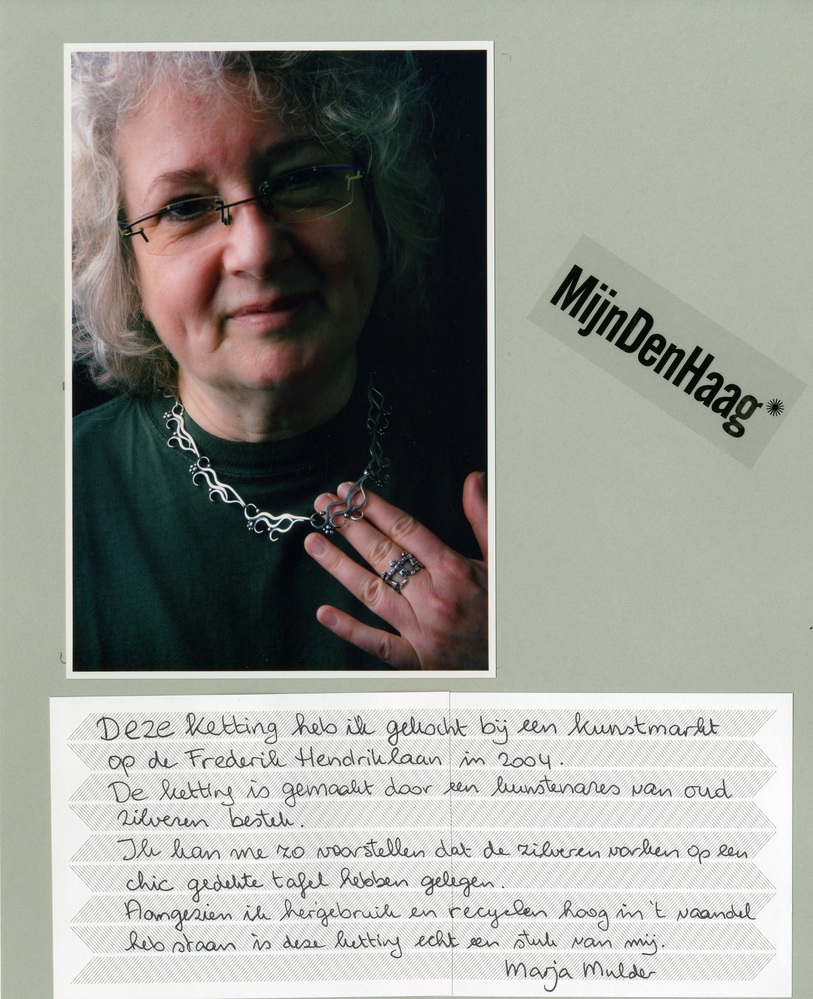 MijnDenHaag*
Deze ketting heb ik gekocht bij een kunstmarkt
op de Frederik Hendriklaan in 2004.
De ketting is gemaakt door een kunstenares van oud
zilveren bestek.
Ik kan me zo voorstellen dat de zilveren vorken op een
chic gedekte tafel hebben gelegen.
Aangezien ik hergebruik en recyclen hoog in 't vaandel
heb staan is deze ketting echt een stuk van mij.
Marja Mulder